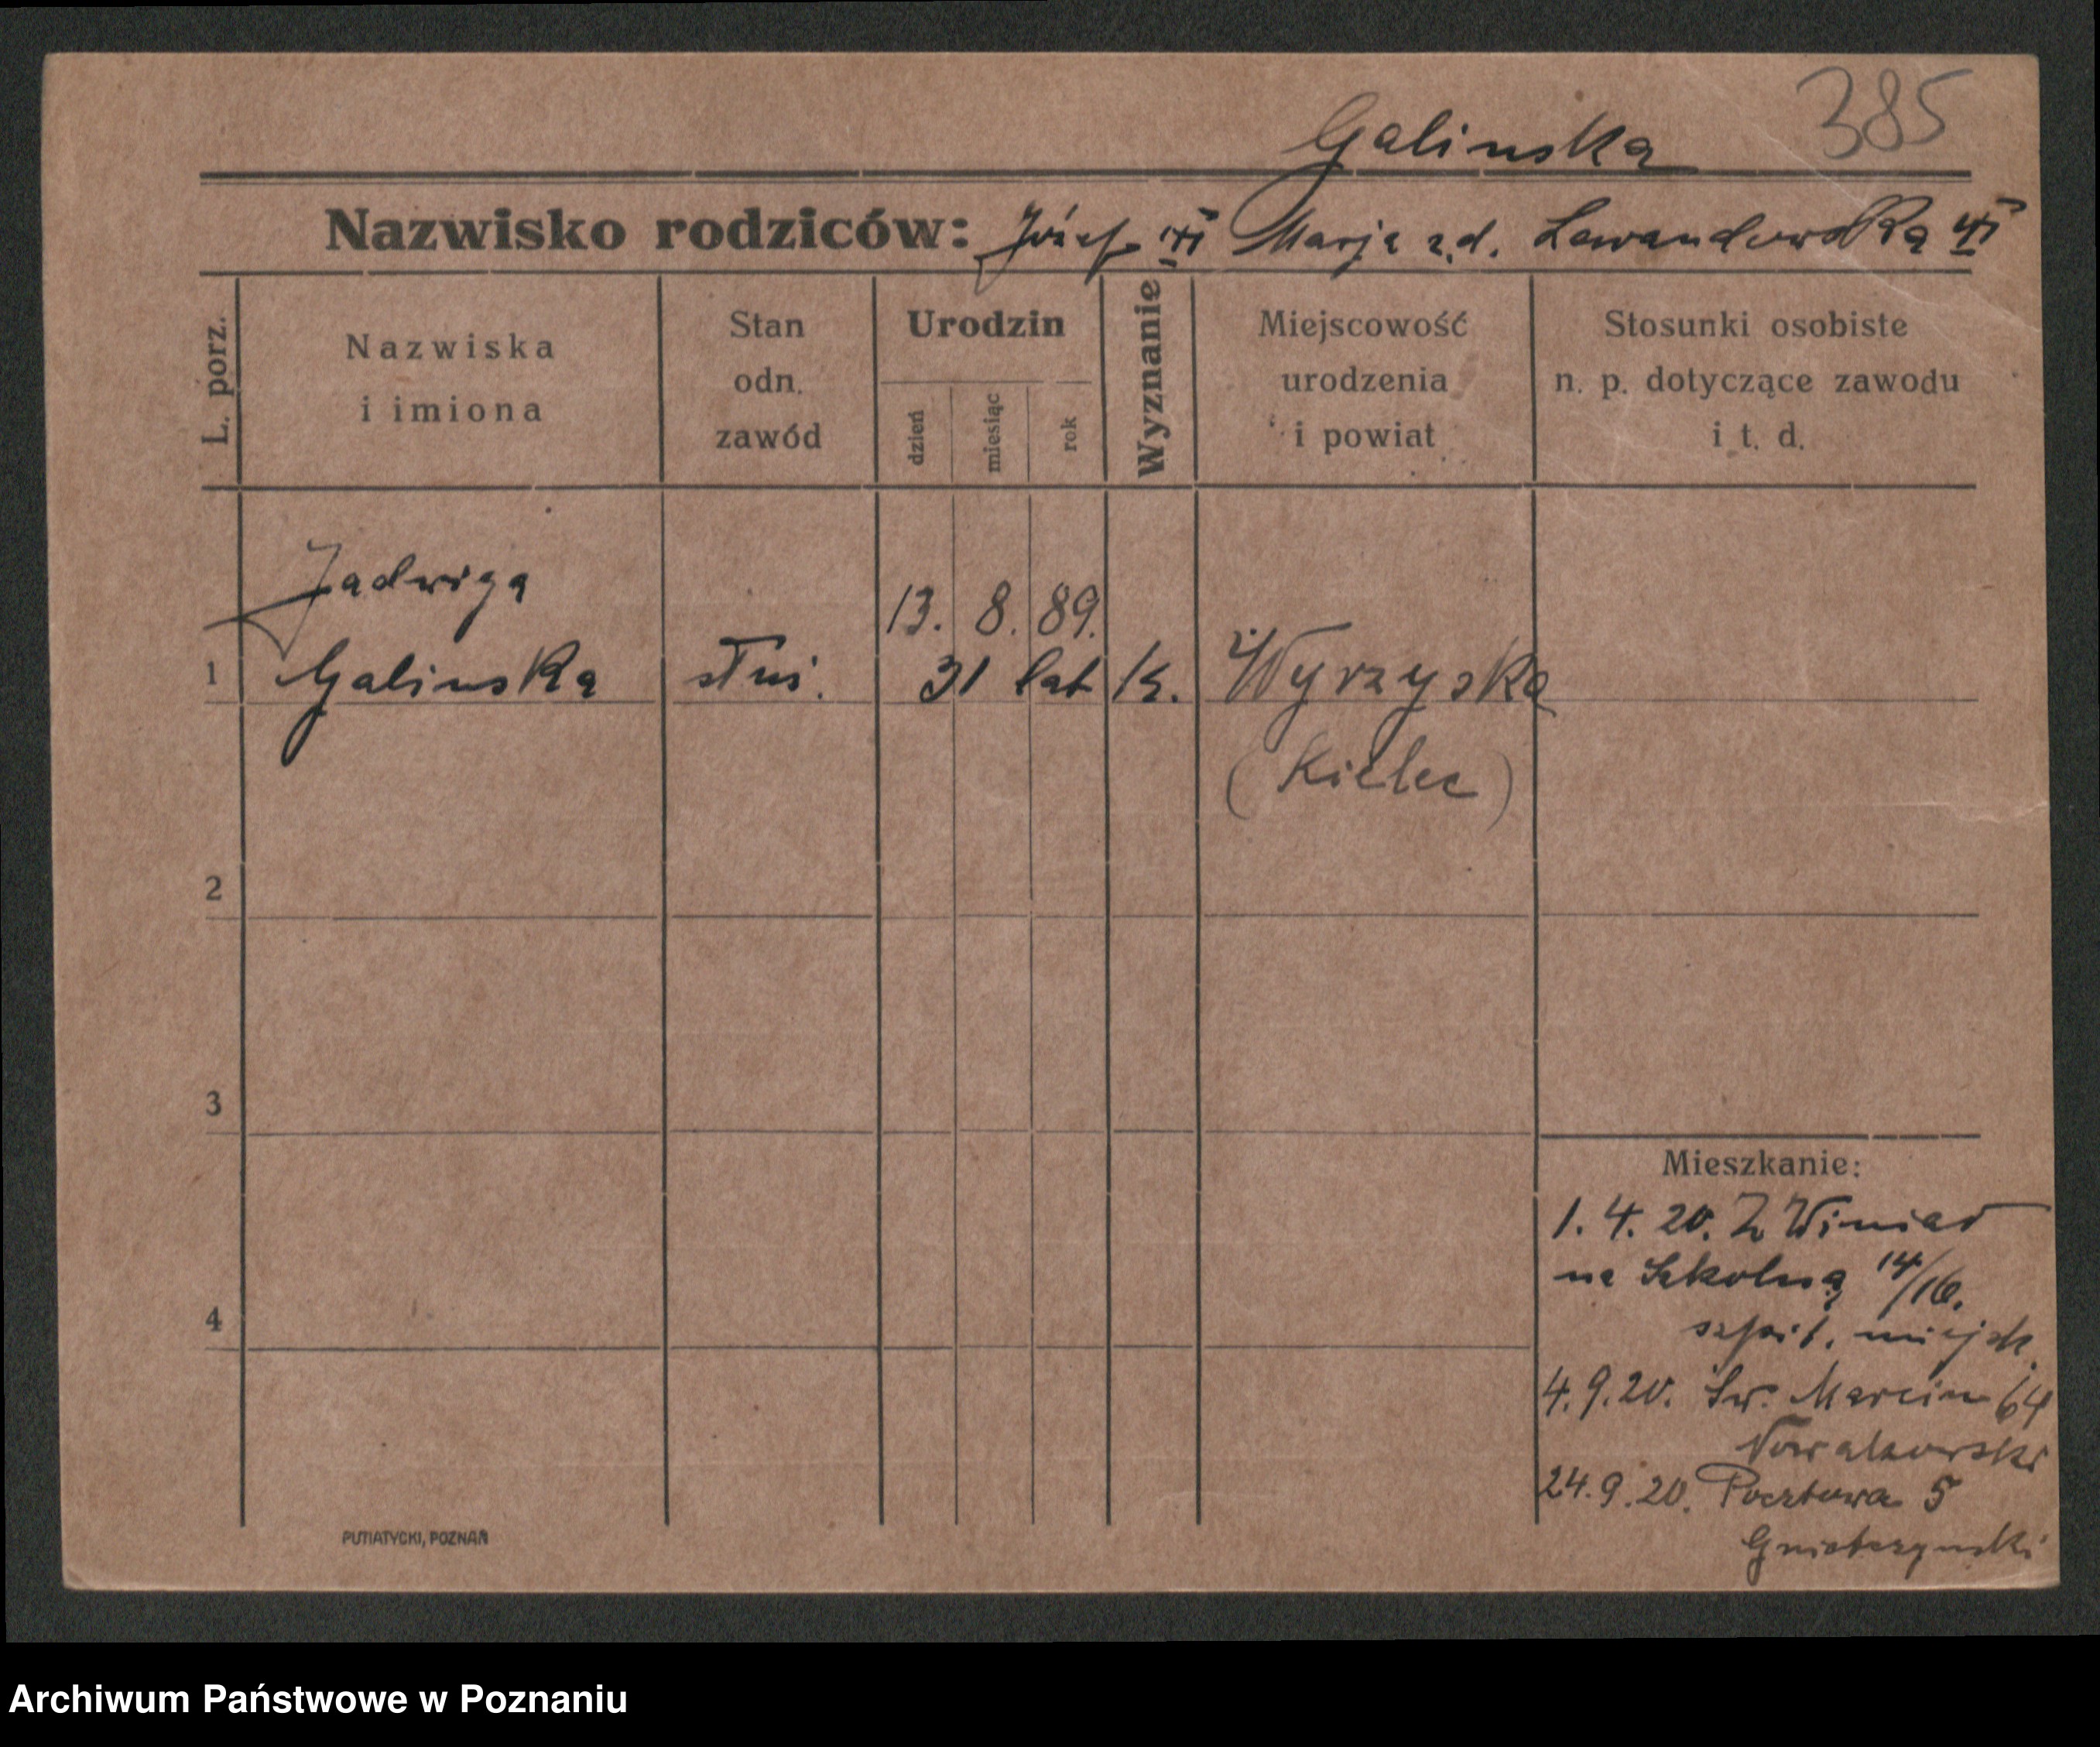 385
Galinska
Nazwisko rodziców: Józef Marja z.d. Lewandowska
L. porz.
Nazwiska
i imiona
Stan
odn.
zawód
Urodzin
dzień
miesiąc
rok
Wyznanie
Miejscowość
urodzenia
i powiat
Stosunki osobiste
n. p. dotyczące zawodu
i t. d.
Jadwiga
13. 8. 89.
1 Galinska służ. 31 lat k. Wyrzyska
(Kielec)
2
3
4
Mieszkanie:
1. 4. 20. Z Winiar
na Szkolną 14/16.
szpit. miejsk.
4. 9. 20. Św. Marcin 64
Nowakowski
24. 9. 20. Pocztowa 5
PUTIATYCKI, POZNAŃ
Archiwum Państwowe w Poznaniu